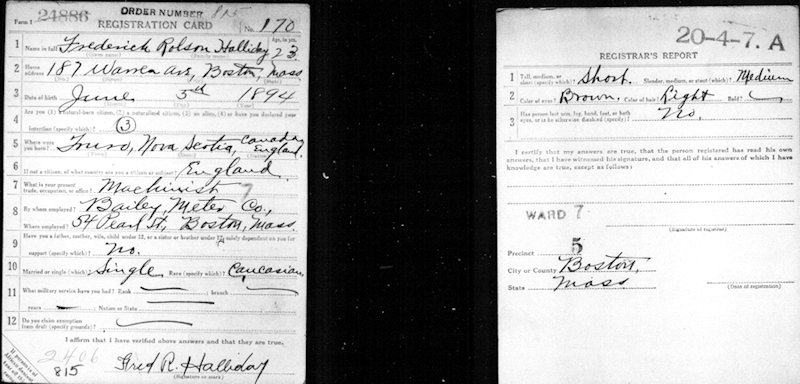 Form 1 24886 ORDER NUMBER 815
REGISTRATION CARD No. 170
1 Name in full Frederick Rolson Halliday Age, in yrs. 23
(Given name) (Family name)
2 Home address 187 Warren Av, Boston, Mass
3 Date of birth June 5th 1894
4 Are you (1) a natural-born citizen, (2) a naturalized citizen, (3) an alien, (4) or have you declared your
intention (specify which)? (3)
5 Where were you born? Truro, Nova Scotia, Canada England
6 If not a citizen, of what country are you a citizen or subject? England
7 What is your present trade, occupation, or office? Machinist 7
8 By whom employed? Bailey Meter Co,
Where employed? 54 Pearl St, Boston, Mass.
9 Have you a father, mother, wife, child under 12, or a sister or brother under 12, solely dependent on you for
support (specify which)? No.
10 Married or single (which)? Single Race (specify which)? Caucasian
11 What military service have you had? Rank branch
years Nation or State
12 Do you claim exemption from draft (specify grounds)?
I affirm that I have verified above answers and that they are true.
2406
815
Fred R. Halliday
(Signature or mark)
20-4-7. A
REGISTRAR'S REPORT
1 Tall, medium, or short (specify which)? Short. Slender, medium, or stout (which)? Medium
2 Color of eyes? Brown, Color of hair? Light Bald?
3 Has person lost arm, leg, hand, foot, or both eyes, or is he otherwise disabled (specify)? No.
I certify that my answers are true, that the person registered has read his own
answers, that I have witnessed his signature, and that all of his answers of which I have
knowledge are true, except as follows:
WARD 7.
(Signature of registrar)
Precinct 5
City or County Boston,
State Mass
(Date of registration)